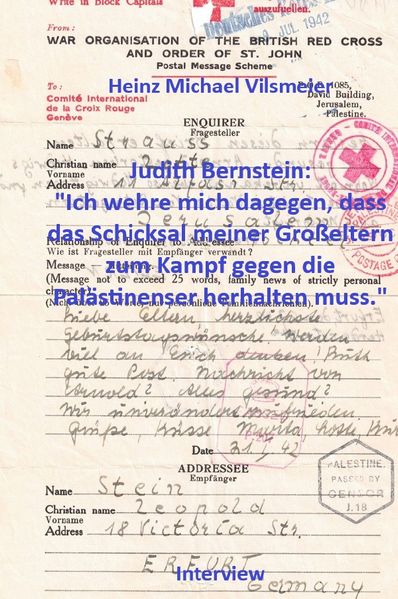 Write in Block Capitals
auszufuellen.
JUL 1942
From:
WAR ORGANISATION OF THE BRITISH RED CROSS
AND ORDER OF ST. JOHN
Postal Message Scheme
To:
Comité International
de la Croix Rouge
Genève
1085,
David Building,
Jerusalem,
Palestine.
Heinz Michael Vilsmeier
ENQUIRER
Fragesteller
Name Strauss
Christian name
Vorname
Address 11 Alfasi Str.
Jerusalem
Judith Bernstein:
"Ich wehre mich dagegen, dass
das Schicksal meiner Großeltern
zum Kampf gegen die
Palästinenser herhalten muss."
Relationship of Enquirer to Addressee
Wie ist Fragesteller mit Empfänger verwandt?
Message
(Message not to exceed 25 words, family news of strictly personal
character)
Liebe Eltern herzlichste
Geburtstagswünsche werden
viel an Erich denken!
gute Post. Nachricht von
Alles gesund?
Wir unverändert zufrieden,
Grüße, Küsse
Date 21. 42
ADDRESSEE
Empfänger
PALESTINE.
PASSED BY
CENSOR
J.18
Name Stein
Christian name Leopold
Vorname
Address 18 Victoria Str.
ERFURT
Germany
Interview